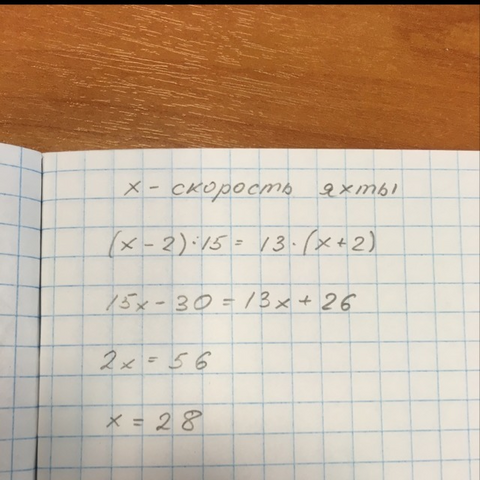 x - скорость яхты
(x - 2) · 15 = 13 · (x + 2)
15x - 30 = 13x + 26
2x = 56
x = 28